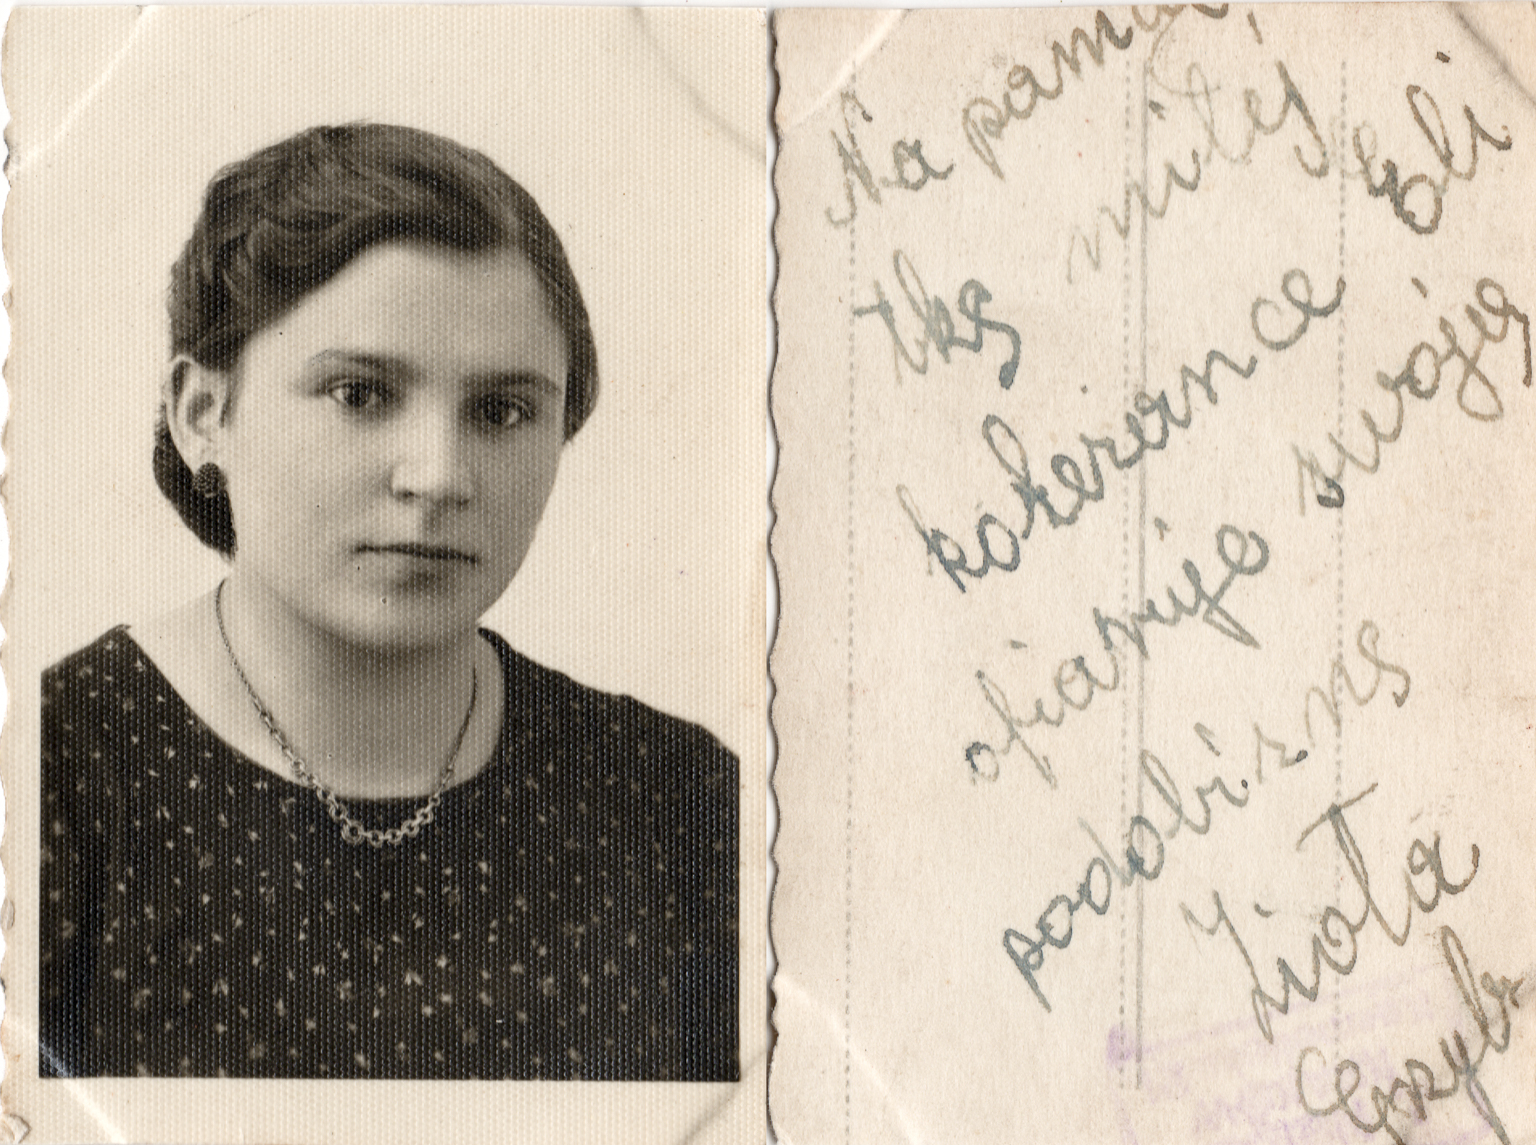 Na pamią
tkę miłej Loli
koleżance
ofiaruje swoję
podobiznę
Ziota
Grzyb